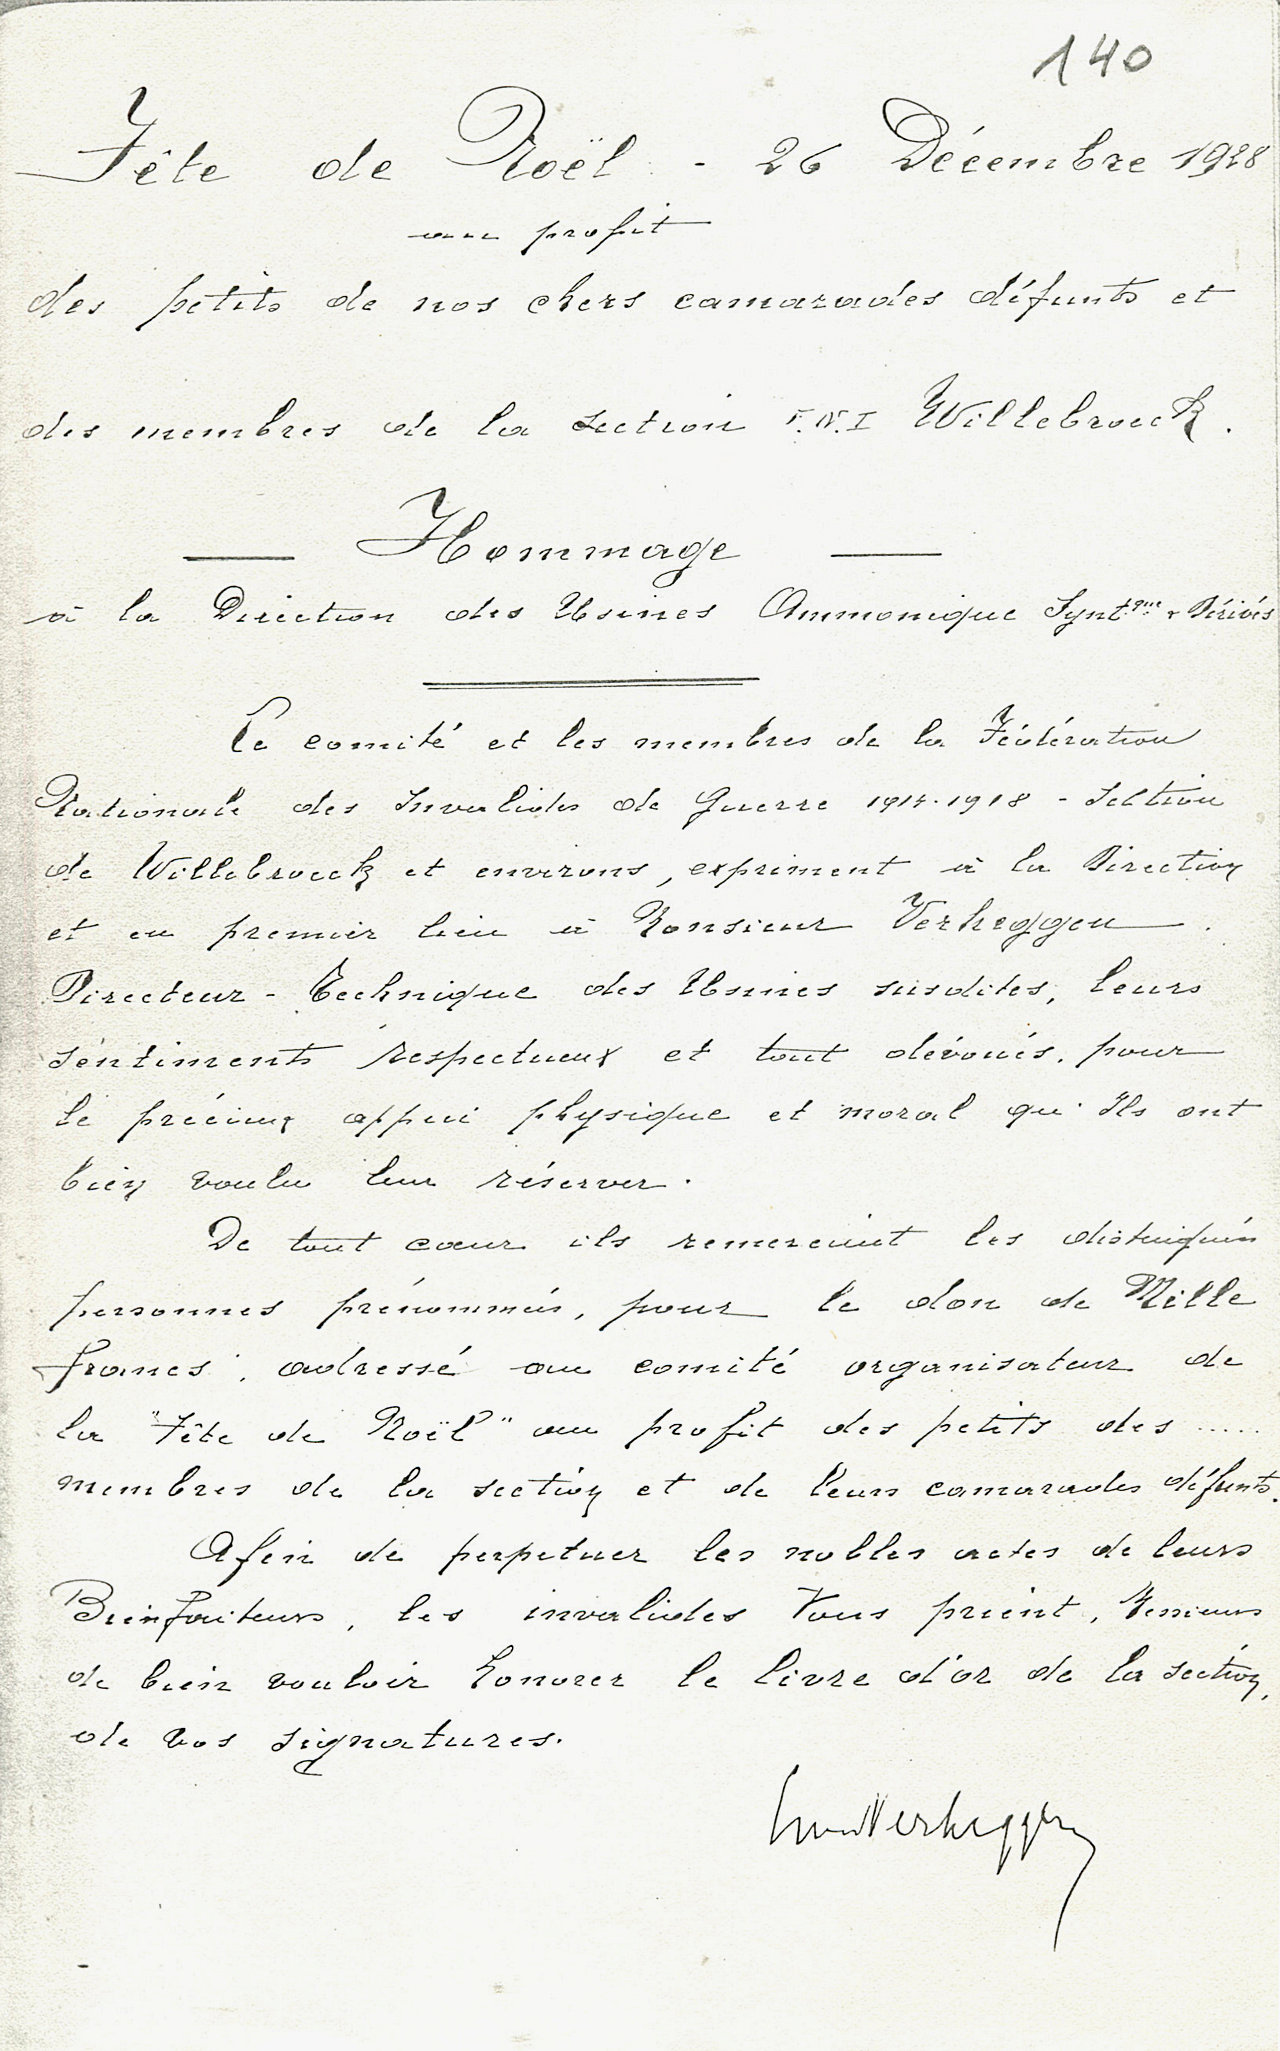 140
Fête de Noël - 26 Décembre 1928
au profit
des petits de nos chers camarades défunts et
des membres de la section F.N.I Willebroeck.
Hommage
à la Direction des Usines Ammonique Synt.que & Dérivés
Le comité et les membres de la Fédération
Nationale des Invalides de Guerre 1914-1918 - Section
de Willebroeck et environs, expriment à la Direction
et en premier lieu à Monsieur Verheggen.
Directeur - Technique des Usines susdites, leurs
sentiments respectueux et tout dévoués, pour
le précieux appui physique et moral qu'Ils ont
bien voulu leur réserver.
De tout cœur ils remercient les distingués
personnes prénommées, pour le don de Mille
francs, adressé au comité organisateur de
la "Fête de Noël" au profit des petits des .....
membres de la section et de leurs camarades défunts.
Afin de perpetuer les nobles actes de leurs
Bienfaiteurs, les invalides Vous prient, Messieurs
de bien vouloir honorer le livre d'or de la section,
de vos signatures.
Verheggen